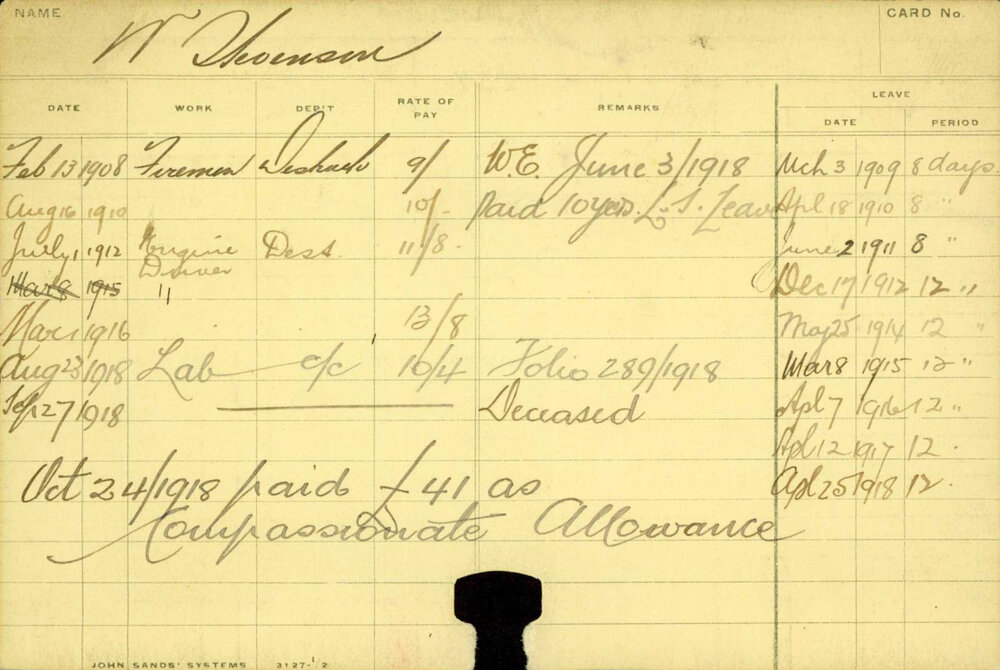 NAME
CARD No.
W Stevenson
DATE WORK DEP'T RATE OF PAY REMARKS LEAVE DATE PERIOD
Feb 13 1908 Firemen 9/ W.E. June 3/1918 Mch 3 1909 8 days
Aug 16 1910 10/- Paid 10 yrs. L.S. Leave Apl 18 1910 8 "
July 1 1912 Engine Driver Dess. 11/8 June 2 1911 8 "
Mar 8 1915 " Dec 17 1912 12 "
Mar 1 1916 13/8 May 25 1914 12 "
Aug 23 1918 Lab c/c 10/4 Folio 289/1918 Mar 8 1915 12 "
Sep 27 1918 Deceased Apl 7 1916 12 "
Apl 12 1917 12 .
Oct 24/1918 paid £41 as Apl 25 1918 12 .
Compassionate Allowance
JOHN SANDS' SYSTEMS 3127-1/2